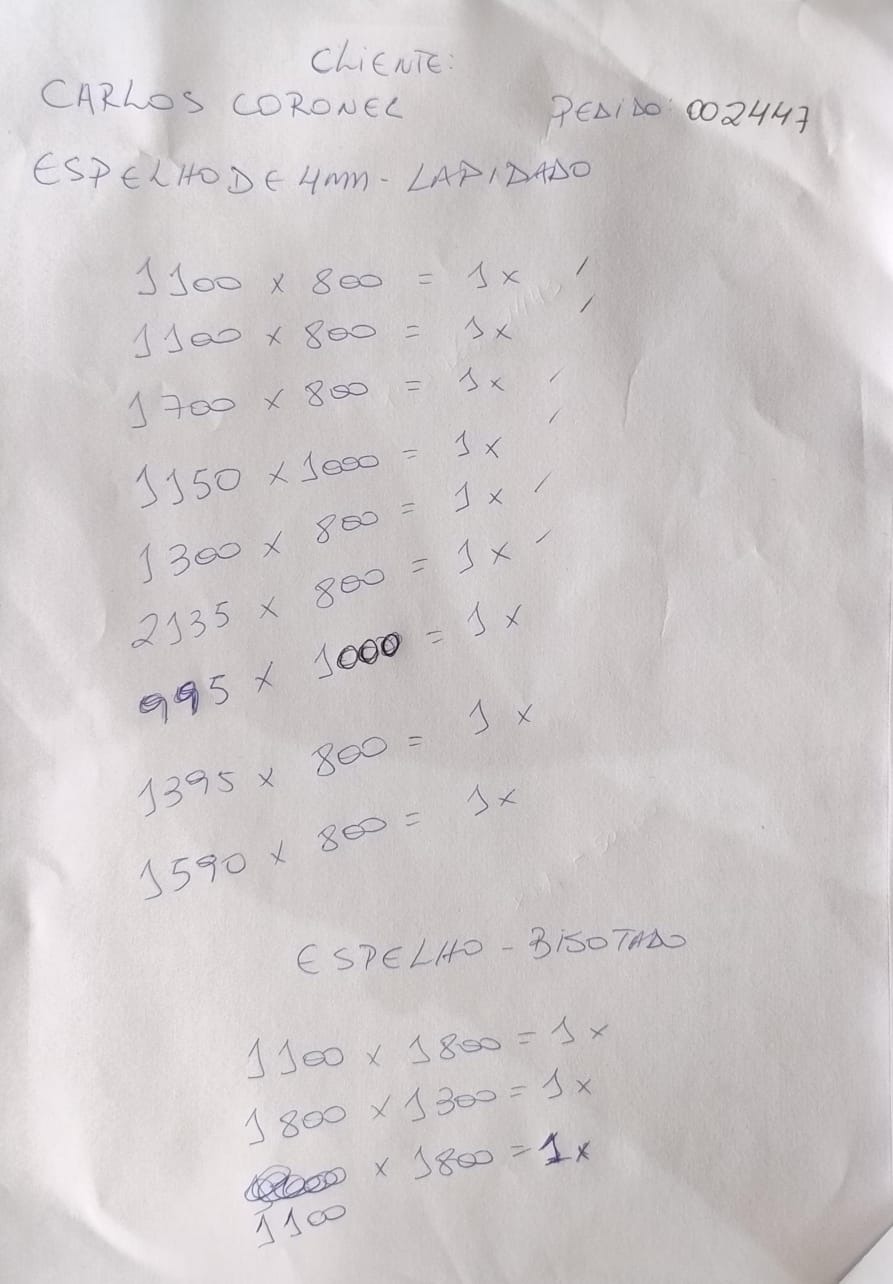 CLIENTE:
CARLOS CORONEL PEDIDO: 002447
ESPELHO DE 4mm - LAPIDADO
1100 x 800 = 1x
1100 x 800 = 1x
1700 x 800 = 1x
1150 x 1000 = 1x
1300 x 800 = 1x
2135 x 800 = 1x
995 x 1000 = 1x
1395 x 800 = 1x
1590 x 800 = 1x
ESPELHO - BISOTADO
1100 x 1800 = 1x
1800 x 1300 = 1x
x 1800 = 1x
1100